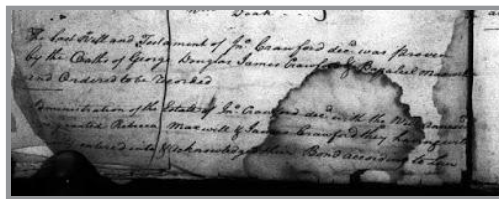 The Last Will and Testament of Jnº Crawford decd was Proven
by the Oaths of George Douglas James Crawford & Bazaleel Maxwell
and Ordered to be Recorded
Administration of the Estate of Jnº Crawford decd with the Will annexed
granted Rebecca Maxwell & James Crawford they having
entered into & acknowledged their Bond according to Law